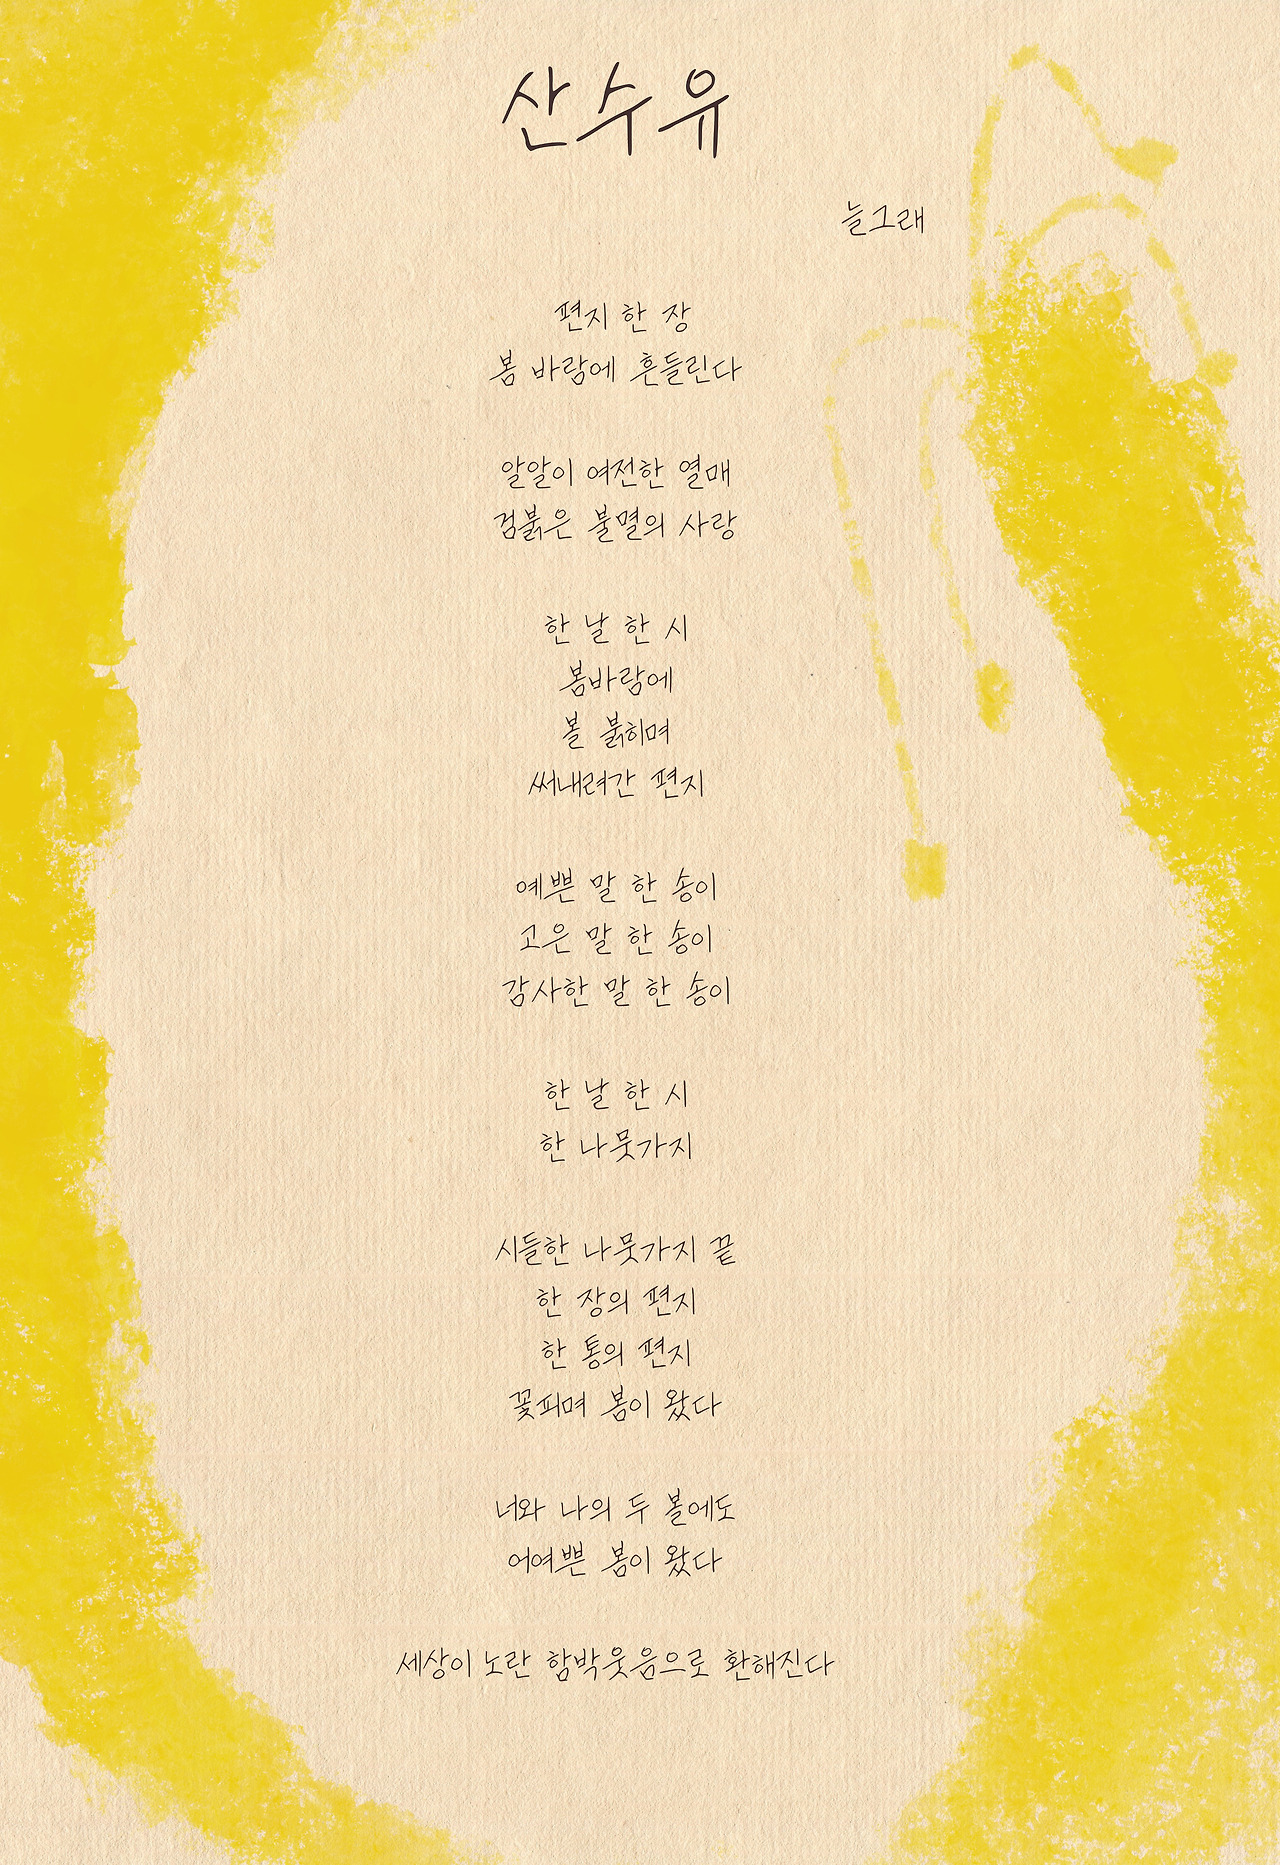 산수유
늘그래
편지 한 장
봄 바람에 흔들린다
알알이 여전한 열매
검붉은 불멸의 사랑
한 날 한 시
봄바람에
볼 붉히며
써내려간 편지
예쁜 말 한 송이
고은 말 한 송이
감사한 말 한 송이
한 날 한 시
한 나뭇가지
시들한 나뭇가지 끝
한 장의 편지
한 통의 편지
꽃피며 봄이 왔다
너와 나의 두 볼에도
어여쁜 봄이 왔다
세상이 노란 함박웃음으로 환해진다